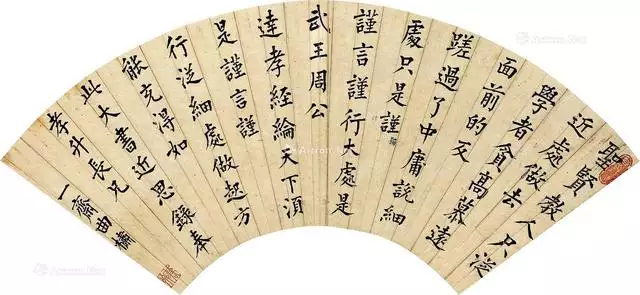 聖賢教人只從
近處做去
學者貪高慕遠
面前的反
蹉過了中庸說細
處只是謹獨
謹言謹行大處是
武王周公
達孝經綸天下須
是謹言謹
行從細處做起方
能充得如
此大書近思錄奉
孝升長兄
一齋曲